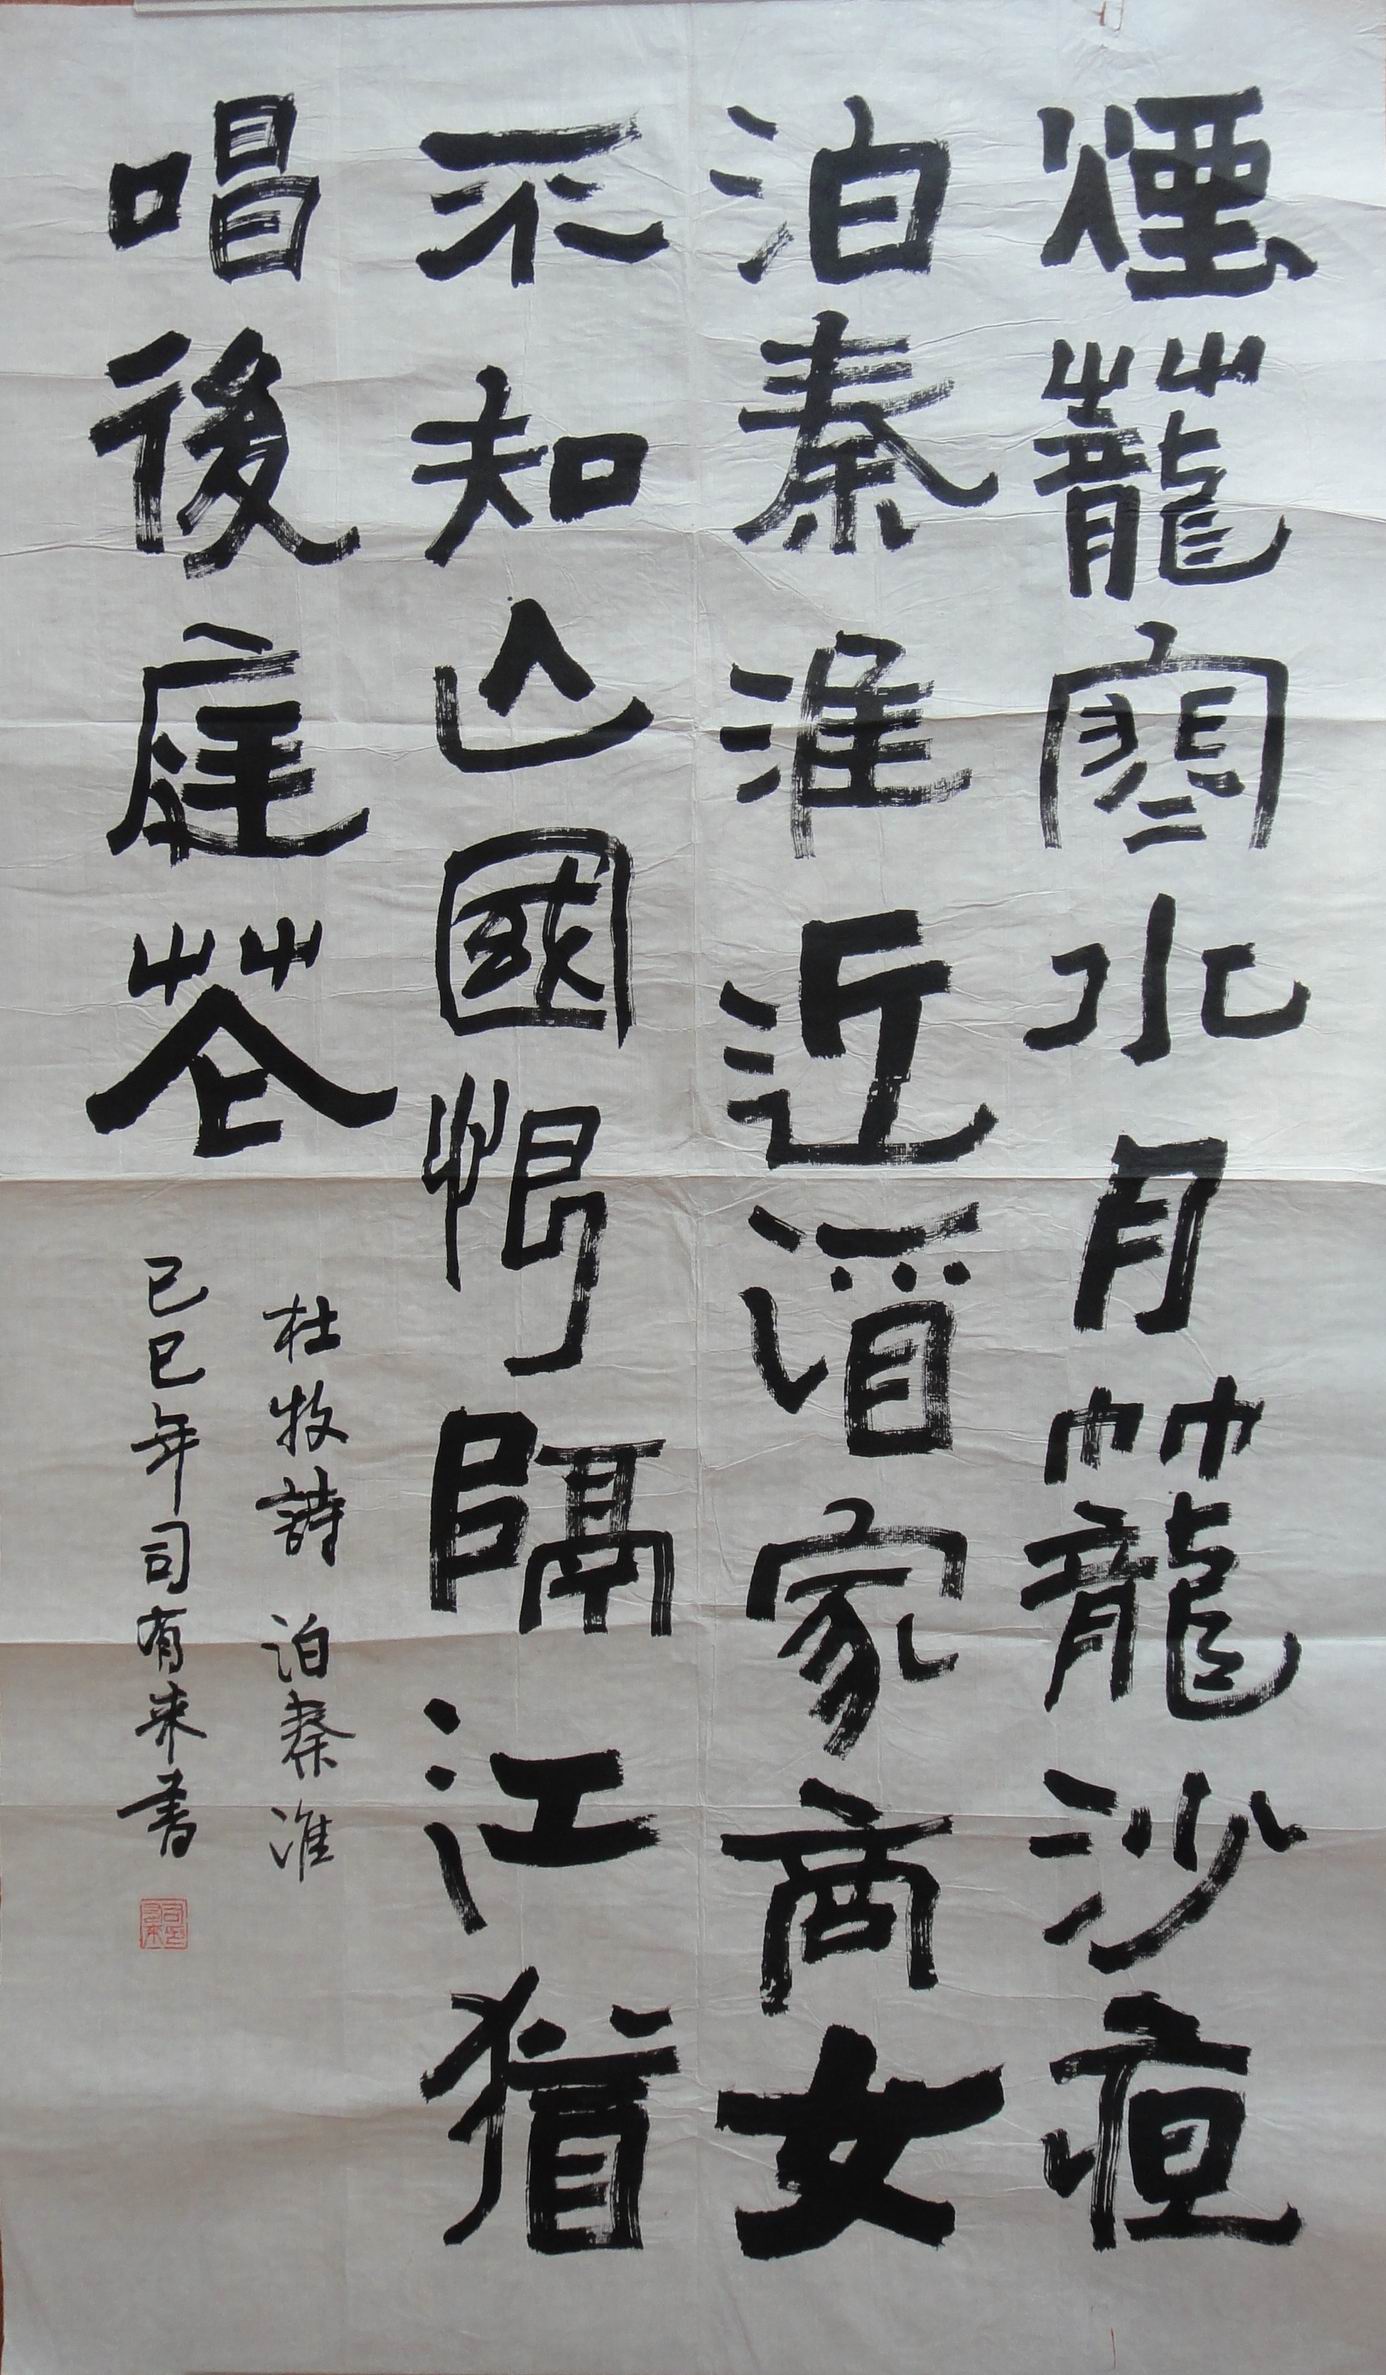 煙蘢寒水月籠沙夜
泊秦淮近酒家商女
不知亡國恨隔江猶
唱後庭花
杜牧詩 泊秦淮
己巳年司有来書